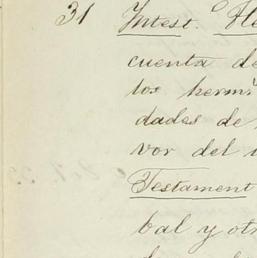 31 Intest.
cuenta de
los herm
dades de
vor del
Testament
bal y otr